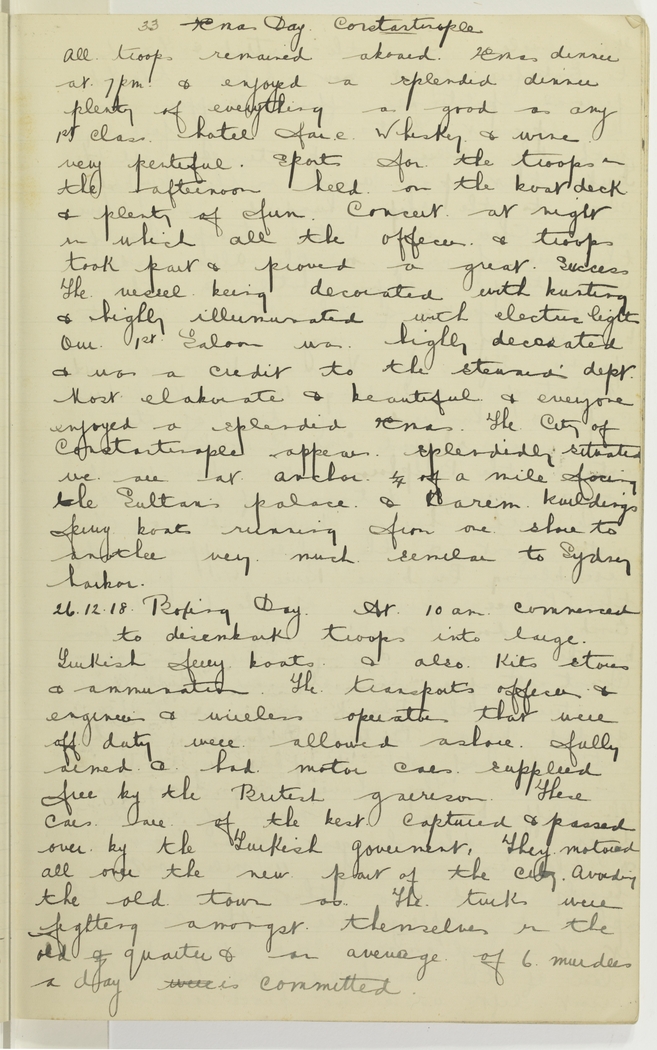 33 Xmas Day. Constantinople
All troops remained aboard. Xmas dinner
at 7 pm. & enjoyed a splendid dinner
plenty of everything as good as any
1st class hotel fare. Whiskey & wine
very pentiful. Sports for the troops in
the afternoon held on the boat deck
& plenty of fun. Concert at night
in which all the officers & troops
took part & proved a great Success
The vessel being decorated with bunting
& highly illuminated with electric light
Our 1st Saloon was highly decorated
& was a credit to the steward's dept.
Most elaborate & beautiful & everyone
enjoyed a splendid Xmas. The City of
Constantinople appears splendidly situated
we are at anchor ¼ of a mile facing
the Sultans palace & Harem buildings
ferry boats running from one shore to
another very much similar to Sydney
harbor.
26.12.18. Boxing Day. At 10 am commenced
to disembark troops into large
Turkish ferry boats & also Kits stores
& ammunation. The transports officers &
engineers & wireless operators that were
off duty were allowed ashore. fully
armed & had motor cars supplied
free by the British garrison. These
cars are of the best captured & passed
over by the Turkish goverment, They motored
all over the new part of the city. Avoiding
the old town as The turks were
fighting amongst themselves in the
old quarter & an average of 6 murders
a day is committed.